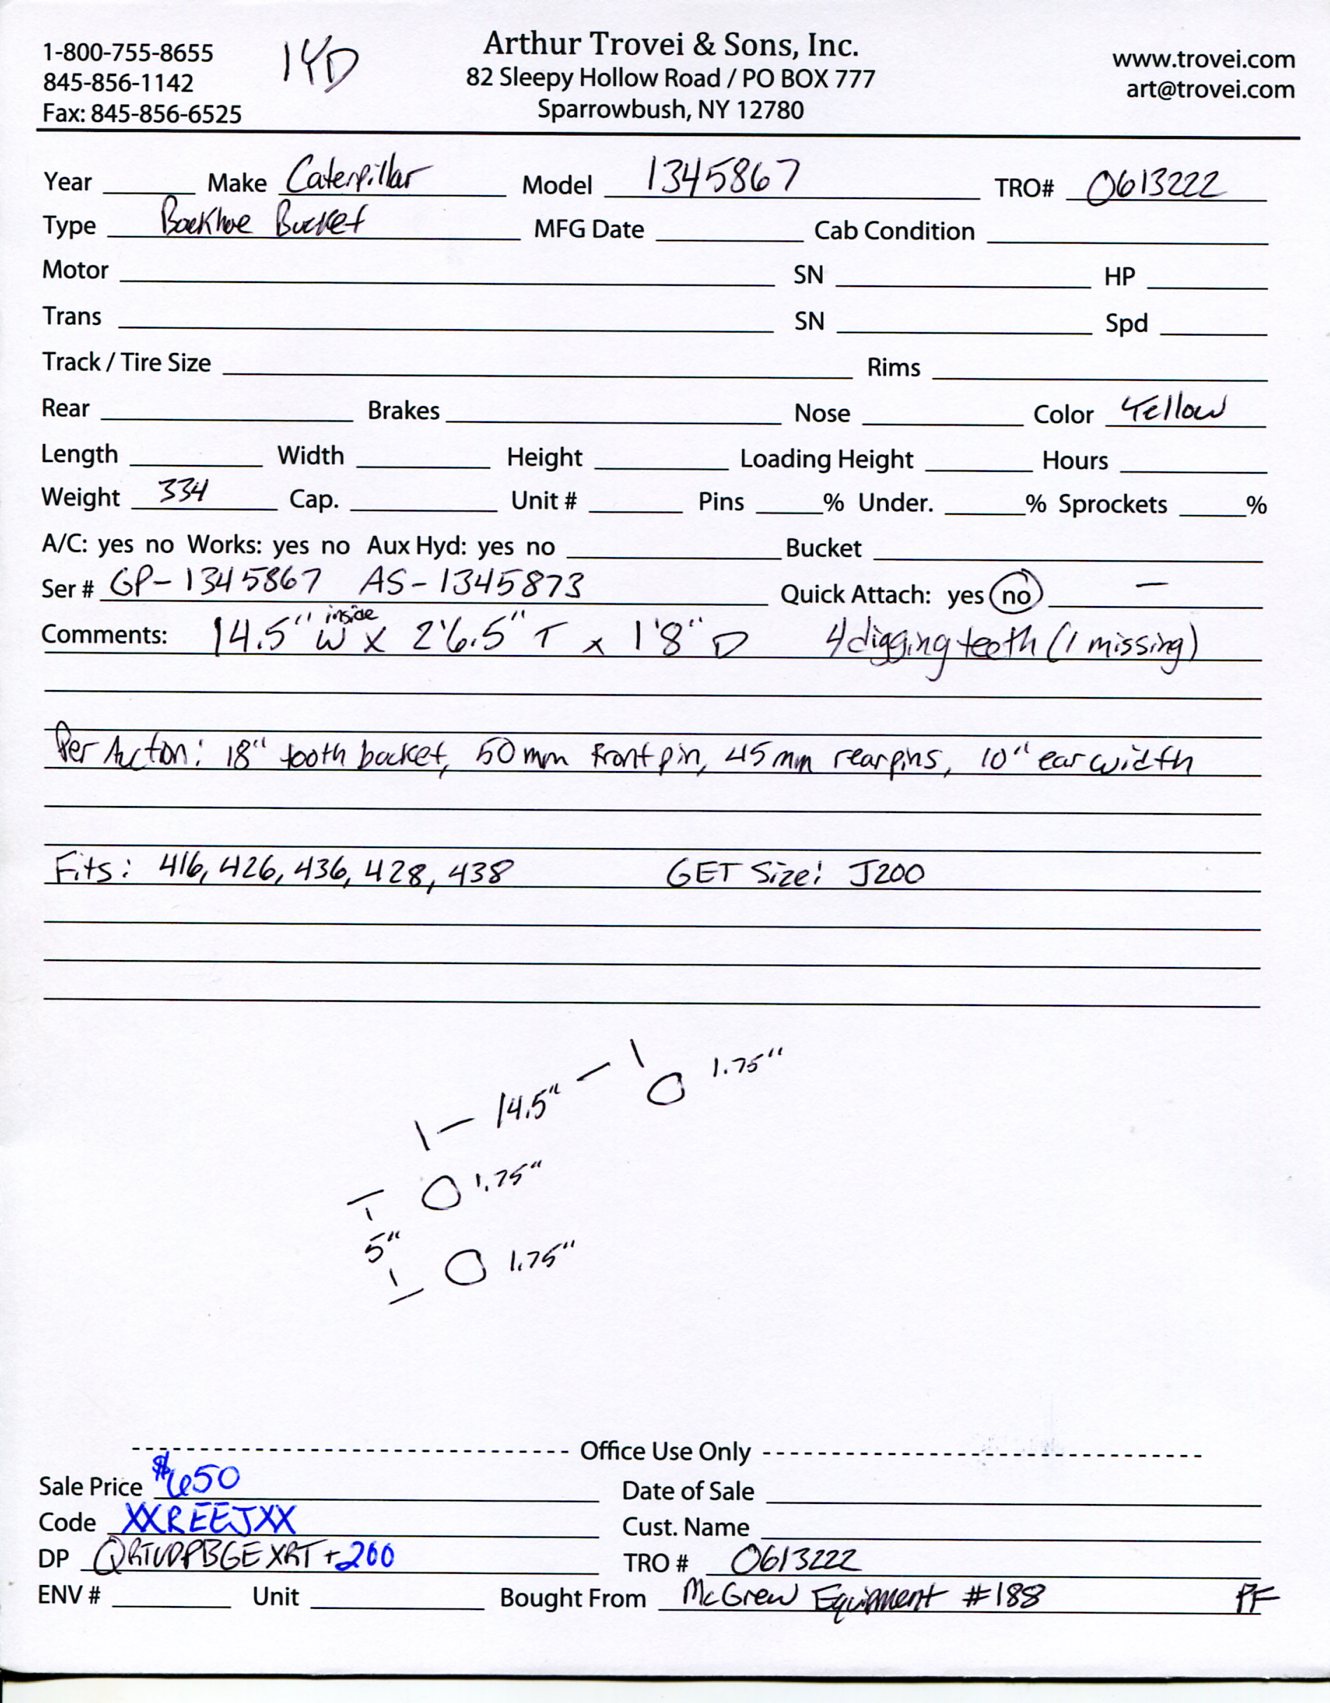 1-800-755-8655
845-856-1142
Fax: 845-856-6525
1YD
Arthur Trovei & Sons, Inc.
82 Sleepy Hollow Road / PO BOX 777
Sparrowbush, NY 12780
www.trovei.com
art@trovei.com
Year Make Caterpillar Model 1345867 TRO# 0613222
Type Backhoe Bucket MFG Date Cab Condition
Motor SN HP
Trans SN Spd
Track / Tire Size Rims
Rear Brakes Nose Color Yellow
Length Width Height Loading Height Hours
Weight 334 Cap. Unit # Pins % Under. % Sprockets %
A/C: yes no Works: yes no Aux Hyd: yes no Bucket
Ser # GP-1345867 AS-1345873 Quick Attach: yes no —
Comments: 14.5" inside W x 2'6.5" T x 1'8" D 4 digging teeth (1 missing)
Per Auction: 18" tooth bucket, 50mm front pin, 45mm rear pins, 10" ear width
Fits: 416, 426, 436, 428, 438 GET Size: J200
14.5" 1.75"
1.75"
5"
1.75"
Office Use Only
Sale Price $650 Date of Sale
Code XXREEJXX Cust. Name
DP +200 TRO # 0613222
ENV # Unit Bought From McGrew Equipment #188 PF